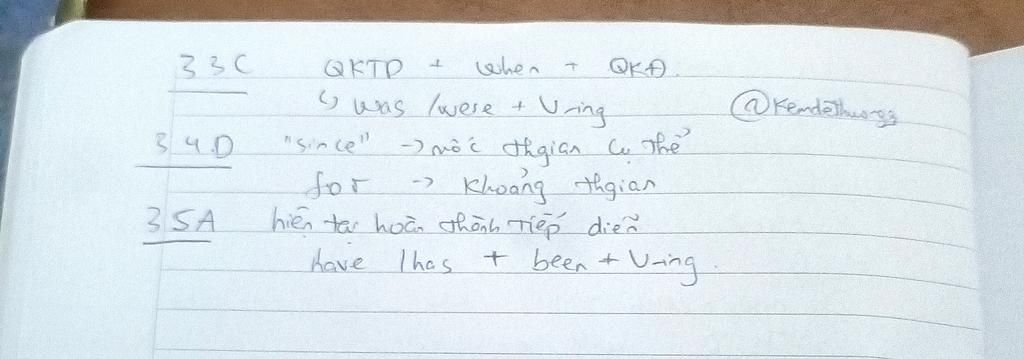 33C QKTD + when + QKĐ.
↳ was /were + V-ing @kemdethuongg
34.D "since" -> mốc thgian cụ thể
for -> Khoảng thgian
35A hiện tại hoàn thành Tiếp diễn
have /has + been + V-ing.